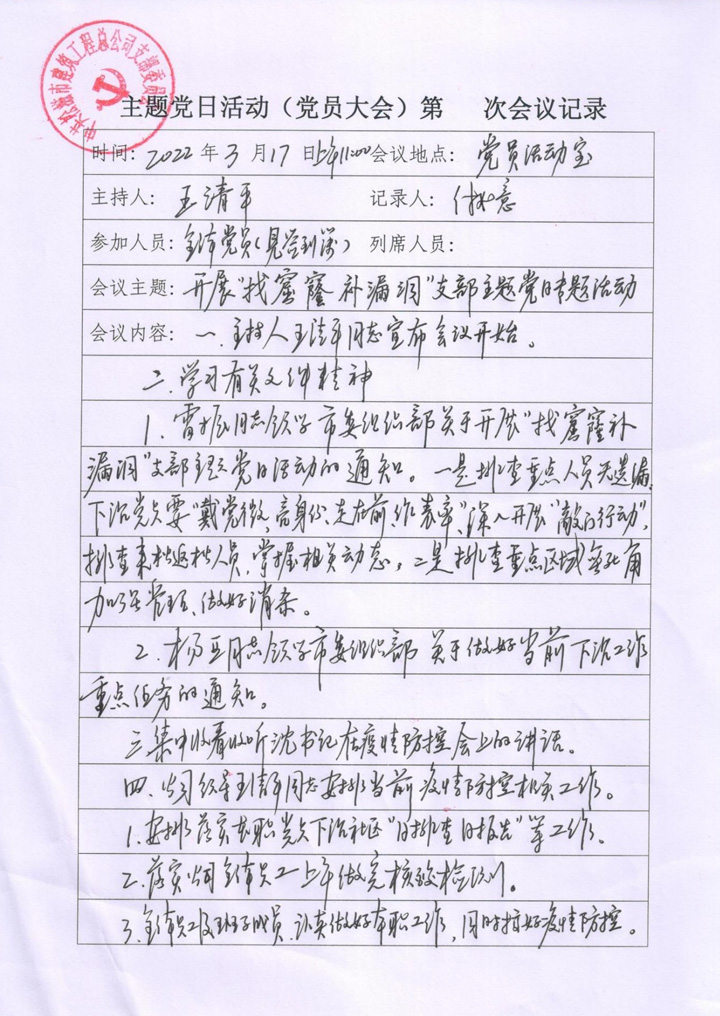 主题党日活动（党员大会）第 次会议记录
时间：2022年3月17日上午11:00 会议地点：党员活动室
主持人：王清平 记录人：付如意
参加人员：全体党员（见签到簿） 列席人员：
会议主题：开展“找窟窿补漏洞”支部主题党日专题活动
会议内容：一、主持人王清平同志宣布会议开始。
二、学习有关文件精神
1、雷振同志领学市委组织部关于开展“找窟窿补
漏洞”支部主题党日活动的通知。一是排查重点人员无遗漏，
下沉党员要“戴党徽，亮身份，走在前，作表率”，深入开展“敲门行动”，
排查来松返松人员，掌握相关动态。二是排查重点区域无死角
加强管理、做好消杀。
2、杨亚同志领学市委组织部关于做好当前下沉工作
重点任务的通知。
三、集中收看收听沈书记在疫情防控会上的讲话。
四、公司经理王清平同志安排当前疫情防控相关工作。
1、安排落实在职党员下沉社区“日排查日报告”等工作。
2、落实公司全体员工上午做完核酸检测。
3、全体员工及班子成员，认真做好本职工作，同时搞好疫情防控。